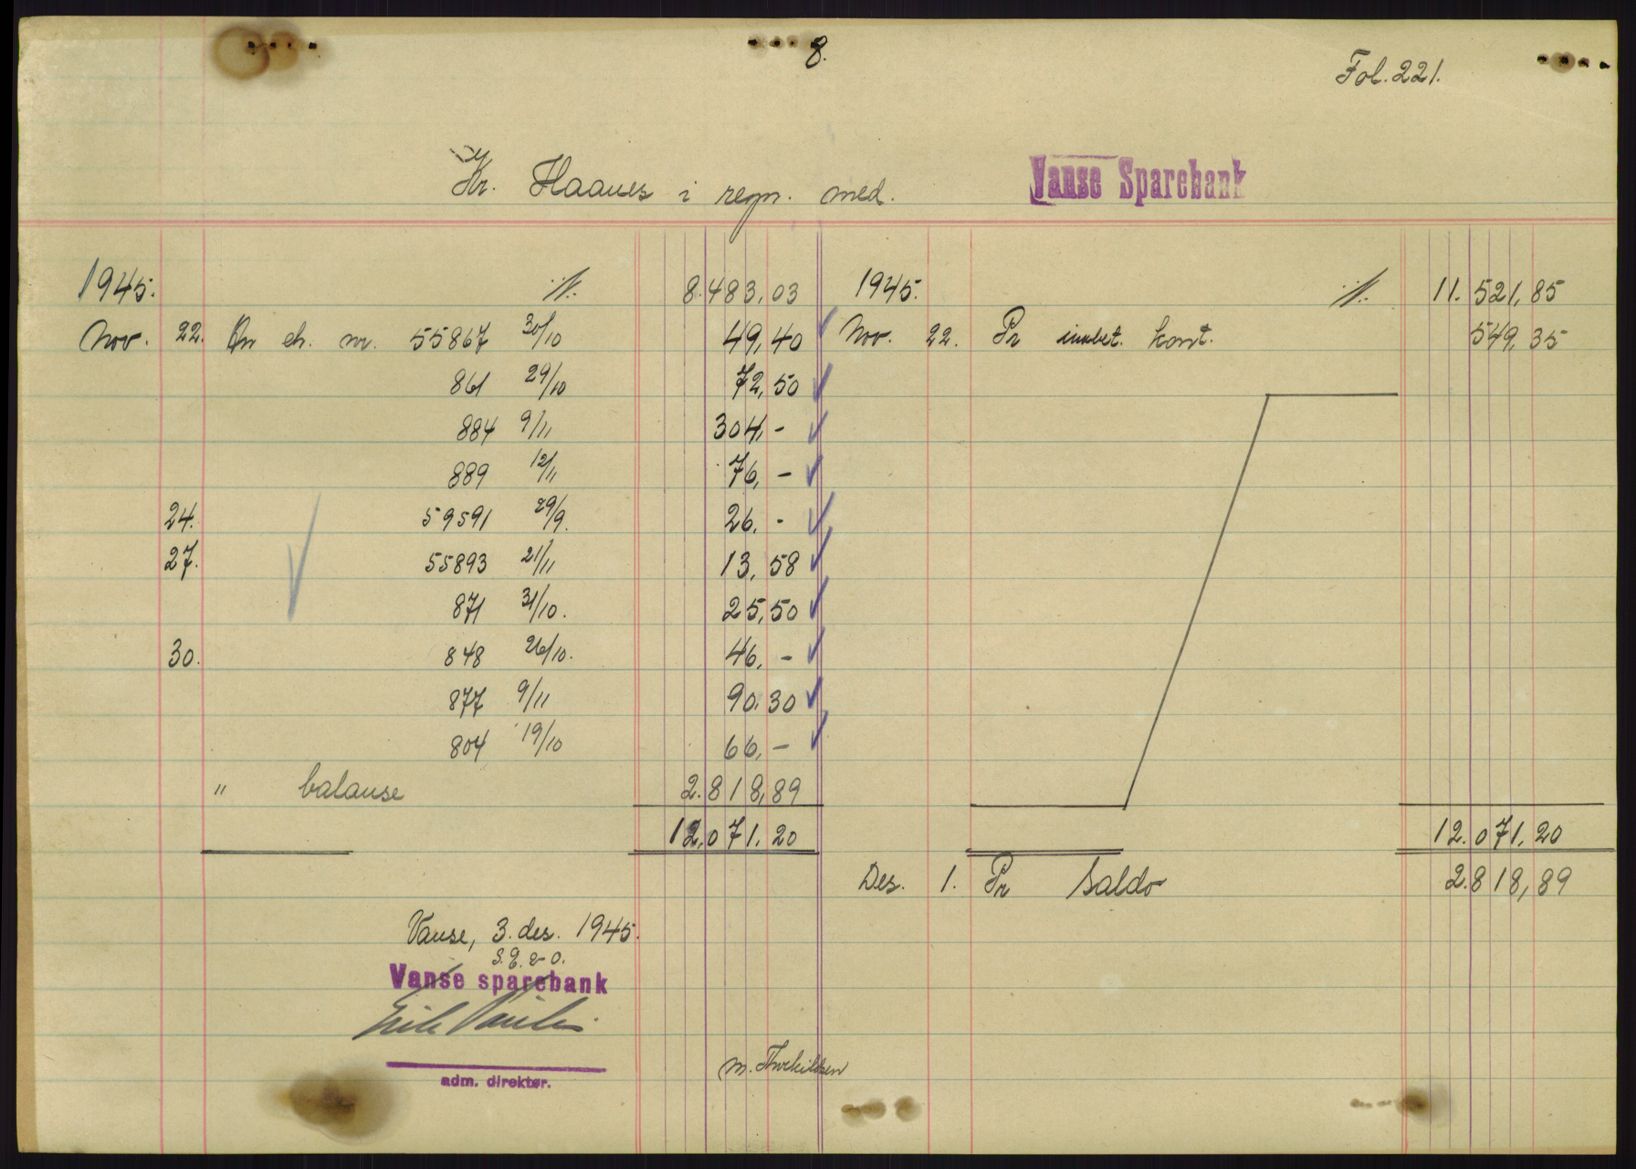 8.
Fol. 221.
Kr. Haanes i regn. med. Vanse Sparebank
1945. ./. 8.483,03 1945. ./. 11.521,85
Nov. 22. An ch. nr. 55867 30/10 49,40 Nov. 22. Pr innbet. kont. 549,35
861 29/10 72,50
884 9/11 304,-
889 12/11 76,-
24. 59591 29/9. 26.-
27. 55893 21/11 13,58
871 31/10. 25,50
30. 848 26/10. 46,-
877 9/11 90,30
804 19/10 66,-
" balanse 2.818,89
12.071,20 12.071,20
Des. 1. Pr Saldo 2.818,89
Vanse, 3. des. 1945.
S.E. & O.
Vanse sparebank
adm. direktør.